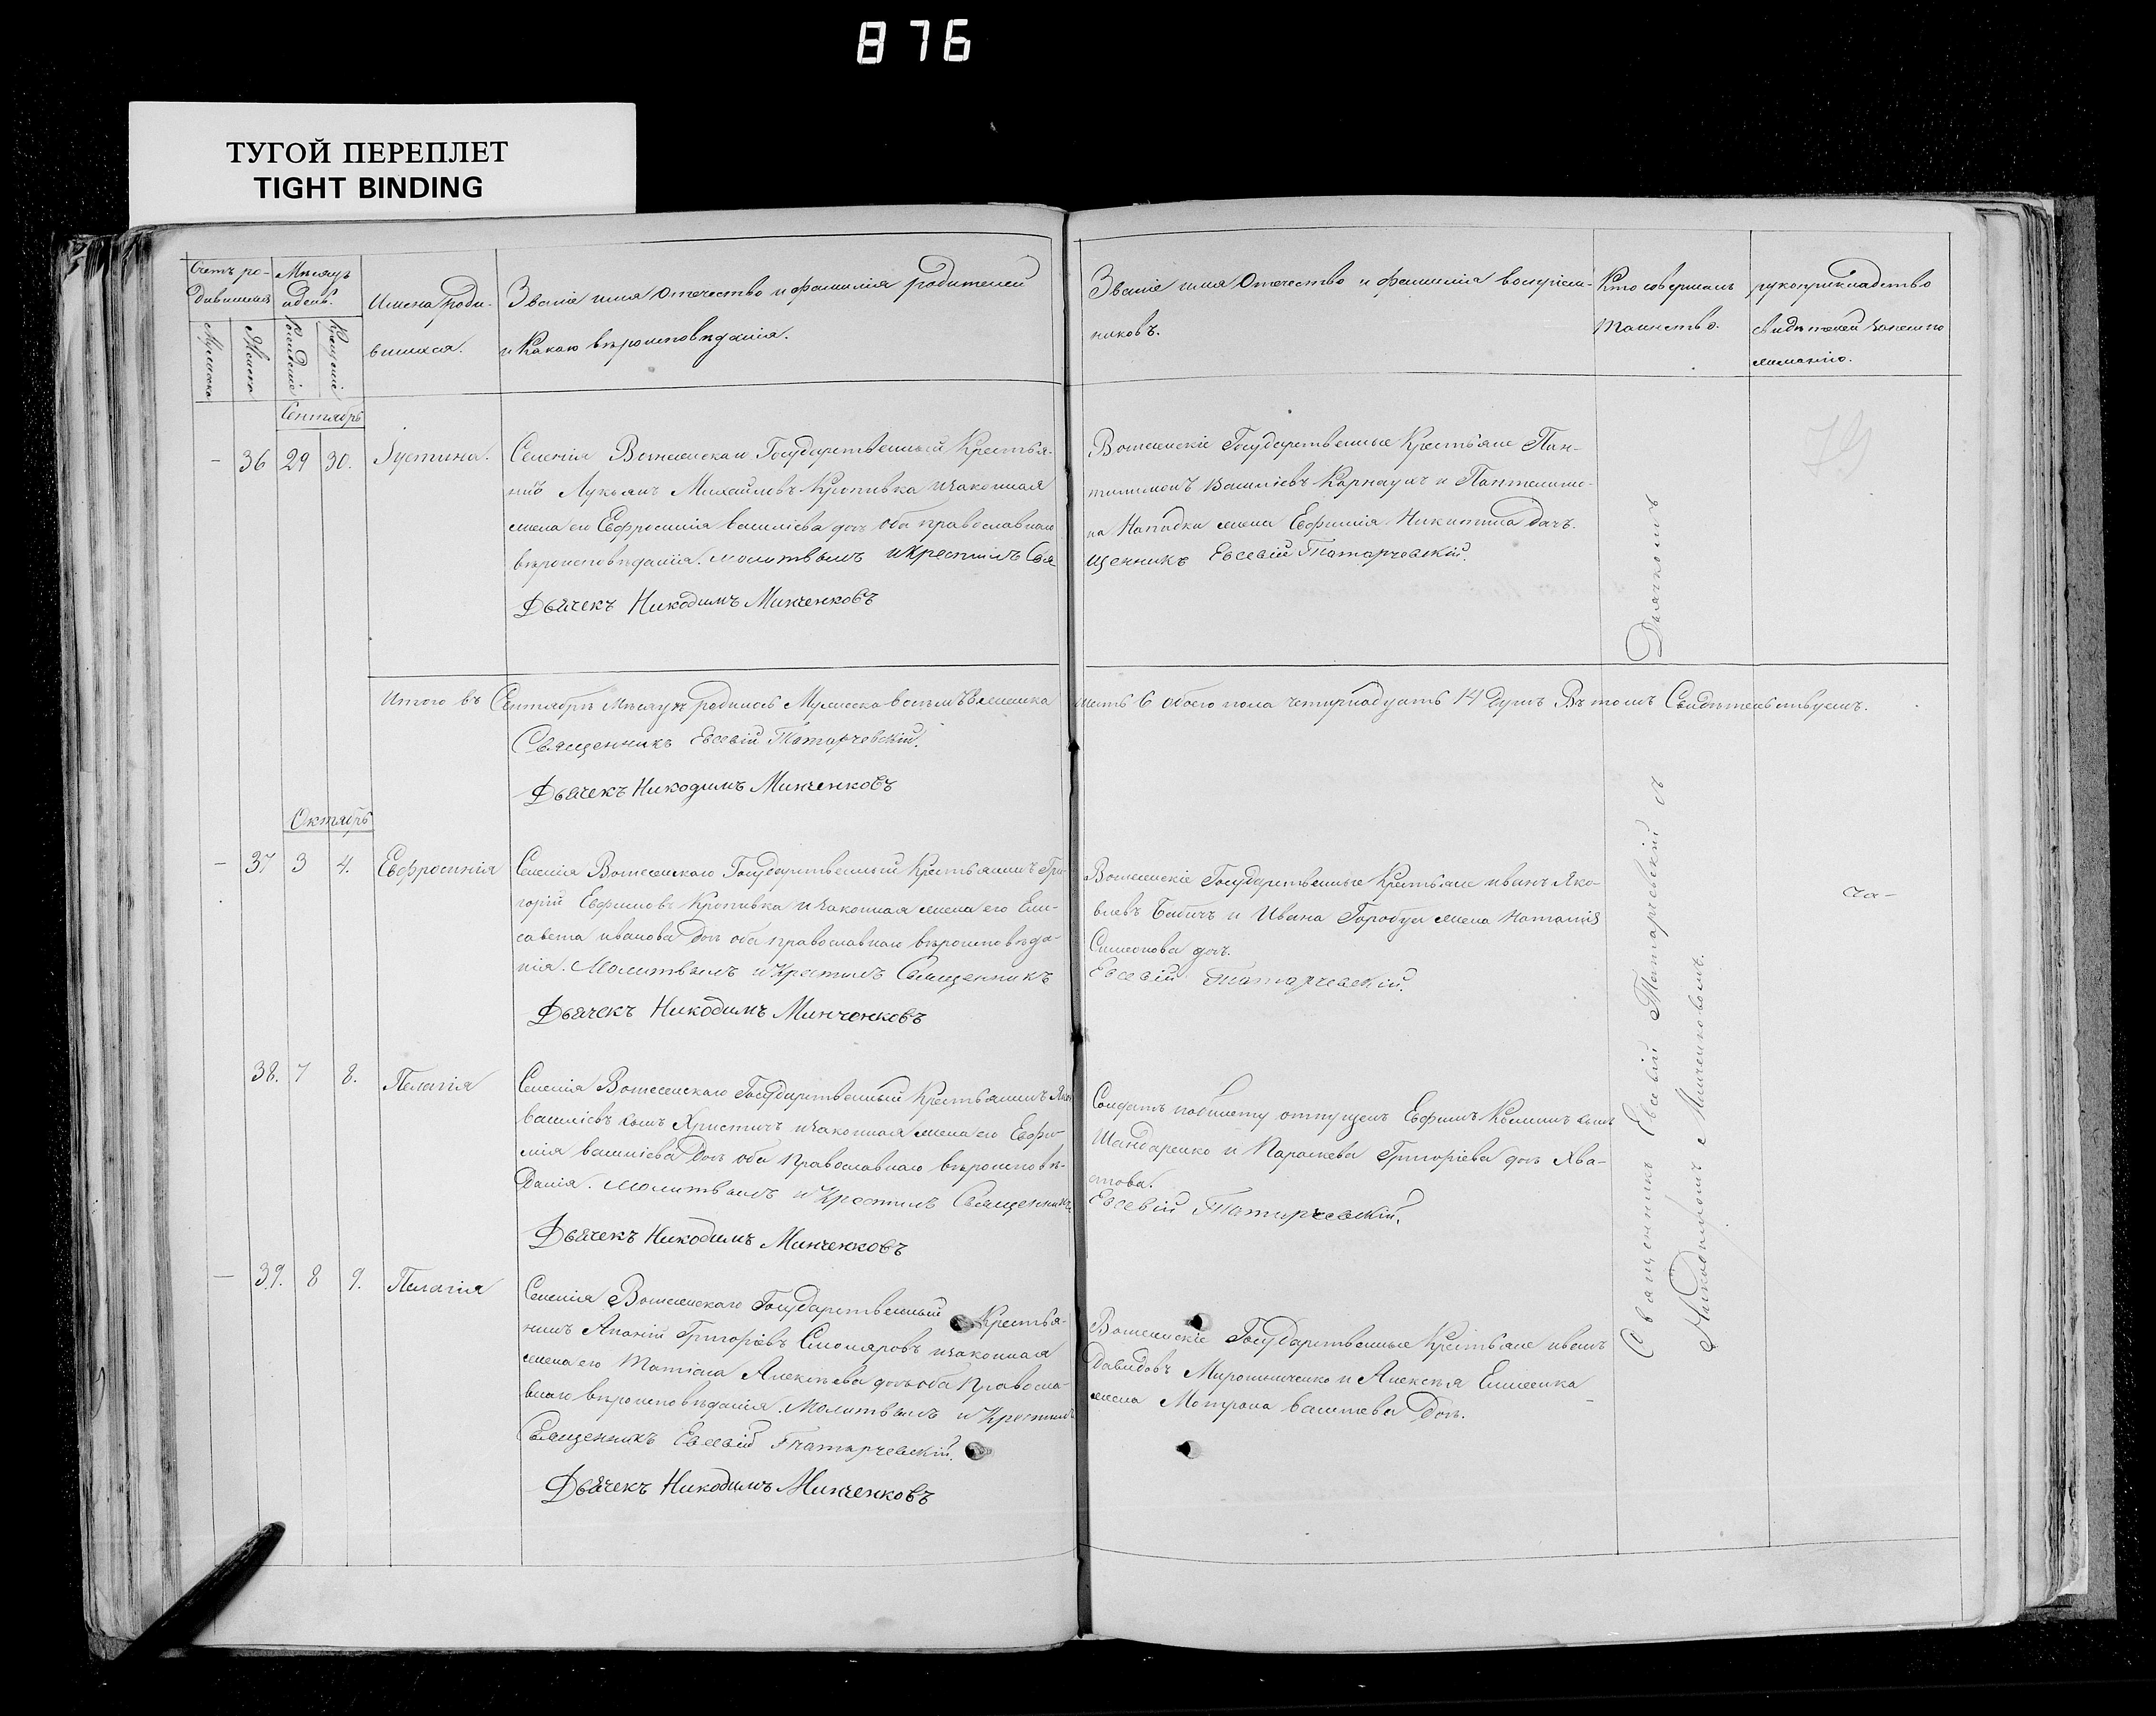 876
ТУГОЙ ПЕРЕПЛЕТ
TIGHT BINDING
Счетъ ро-
дившихся
Мѣсяцъ
и день.
Мужеска
Женска
Рожденіе
Крещеніе
Имена роди-
вшихся.
Званіе имя отечество и фамилія родителей
и какого вѣроисповѣданія.
Званіе имя отечество и фамилія воспріем-
никовъ.
Кто совершалъ
таинство.
рукоприкладство
свидѣтелей записи по
желанію.
Сентябрь
- 36 29 30. Іустина.
Селенія Вознесенскаго Государственный Крестья-
нинъ Лукьянъ Михайловъ Кропивка и законная
жена его Евфросинія Василіева дочь оба православнаго
вѣроисповѣданія. молитвилъ и крестилъ Свя
Дьячекъ Никодимъ Минченковъ
Вознесенскіе Государственные Крестьяне Пан-
телимонъ Василіевъ Карнаухъ и Пантелимо-
на жена Евфимія Никитина дочь.
щенникъ Евсевій Татарчевскій.
Итого въ Сентябрѣ мѣсяцѣ родилось Мужеска восемь 8 женска
шесть 6 обоего пола четырнадцать 14 душъ Въ томъ Свидѣтельствуемъ.
Священникъ Евсевій Татарчевскій.
Дьячекъ Никодимъ Минченковъ
Октябрь
- 37 3 4. Евфросинія
Селенія Вознесенскаго Государственный Крестьянинъ Гри-
горій Ефимовъ Кропивка и законная жена его Ели-
савета иванова дочь оба православнаго вѣроисповѣда-
нія. Молитвилъ и крестилъ Священникъ
Дьячекъ Никодимъ Минченковъ
Вознесенскіе Государственные Крестьяне иванъ Яко-
влевъ Бабичъ и Ивана Горобца жена Наталія
Симеонова дочь.
Евсевій Татарчевскій.
38. 7 8. Пелагія
Селенія Вознесенскаго Государственный Крестьянинъ
Василіевъ сынъ Христичъ и законная жена его Евфи-
мія василіева дочь оба православнаго вѣроисповѣ-
данія. молитвилъ и крестилъ Священникъ
Дьячекъ Никодимъ Минченковъ
Солдатъ по билету отпущенъ Евфимъ сынъ
Шандаренко и Параскева Григоріева дочь Хва-
стова.
Евсевій Татарчевскій.
- 39. 8 9. Пелагія
Селенія Вознесенскаго Государственный Крестья-
нинъ Ананій Григоріевъ Столяровъ и законная
жена его Татіана Алексѣева дочь оба Правосла-
внаго вѣроисповѣданія. Молитвилъ и крестилъ
Священникъ Евсевій Татарчевскій.
Дьячекъ Никодимъ Минченковъ
Вознесенскіе Государственные Крестьяне иванъ
Давидовъ Мирошниченко и Алексѣя
жена Мотрона василіева дочь.
Священникъ Евсевій Татарчевскій съ Дьячкомъ
Никодимомъ Минченковымъ.
79